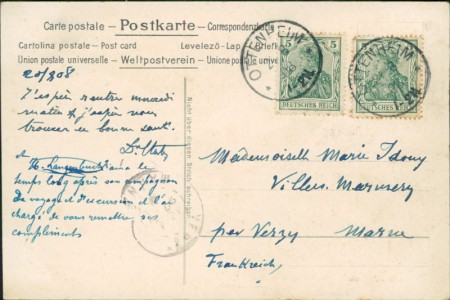 Carte postale – Postkarte – Correspondenzkarte
Cartolina postale – Post card Levelező-Lap –
Union postale universelle – Weltpostverein – Unione postale
20/3 08
J'espère rentrer mercredi
matin & j'espère vous
trouver en bonne santé.
5 5
DEUTSCHES REICH
DEUTSCHES REICH
OTTENHEIM
OTTENHEIM
Nicht über diesen Strich schreiben
temps long après son compagnon
de voyage et d'excursion et l'a
chargé de vous remettre ses
compliments
Mademoiselle Marie
Villers Marmery
par Verzy Marne
Frankreich